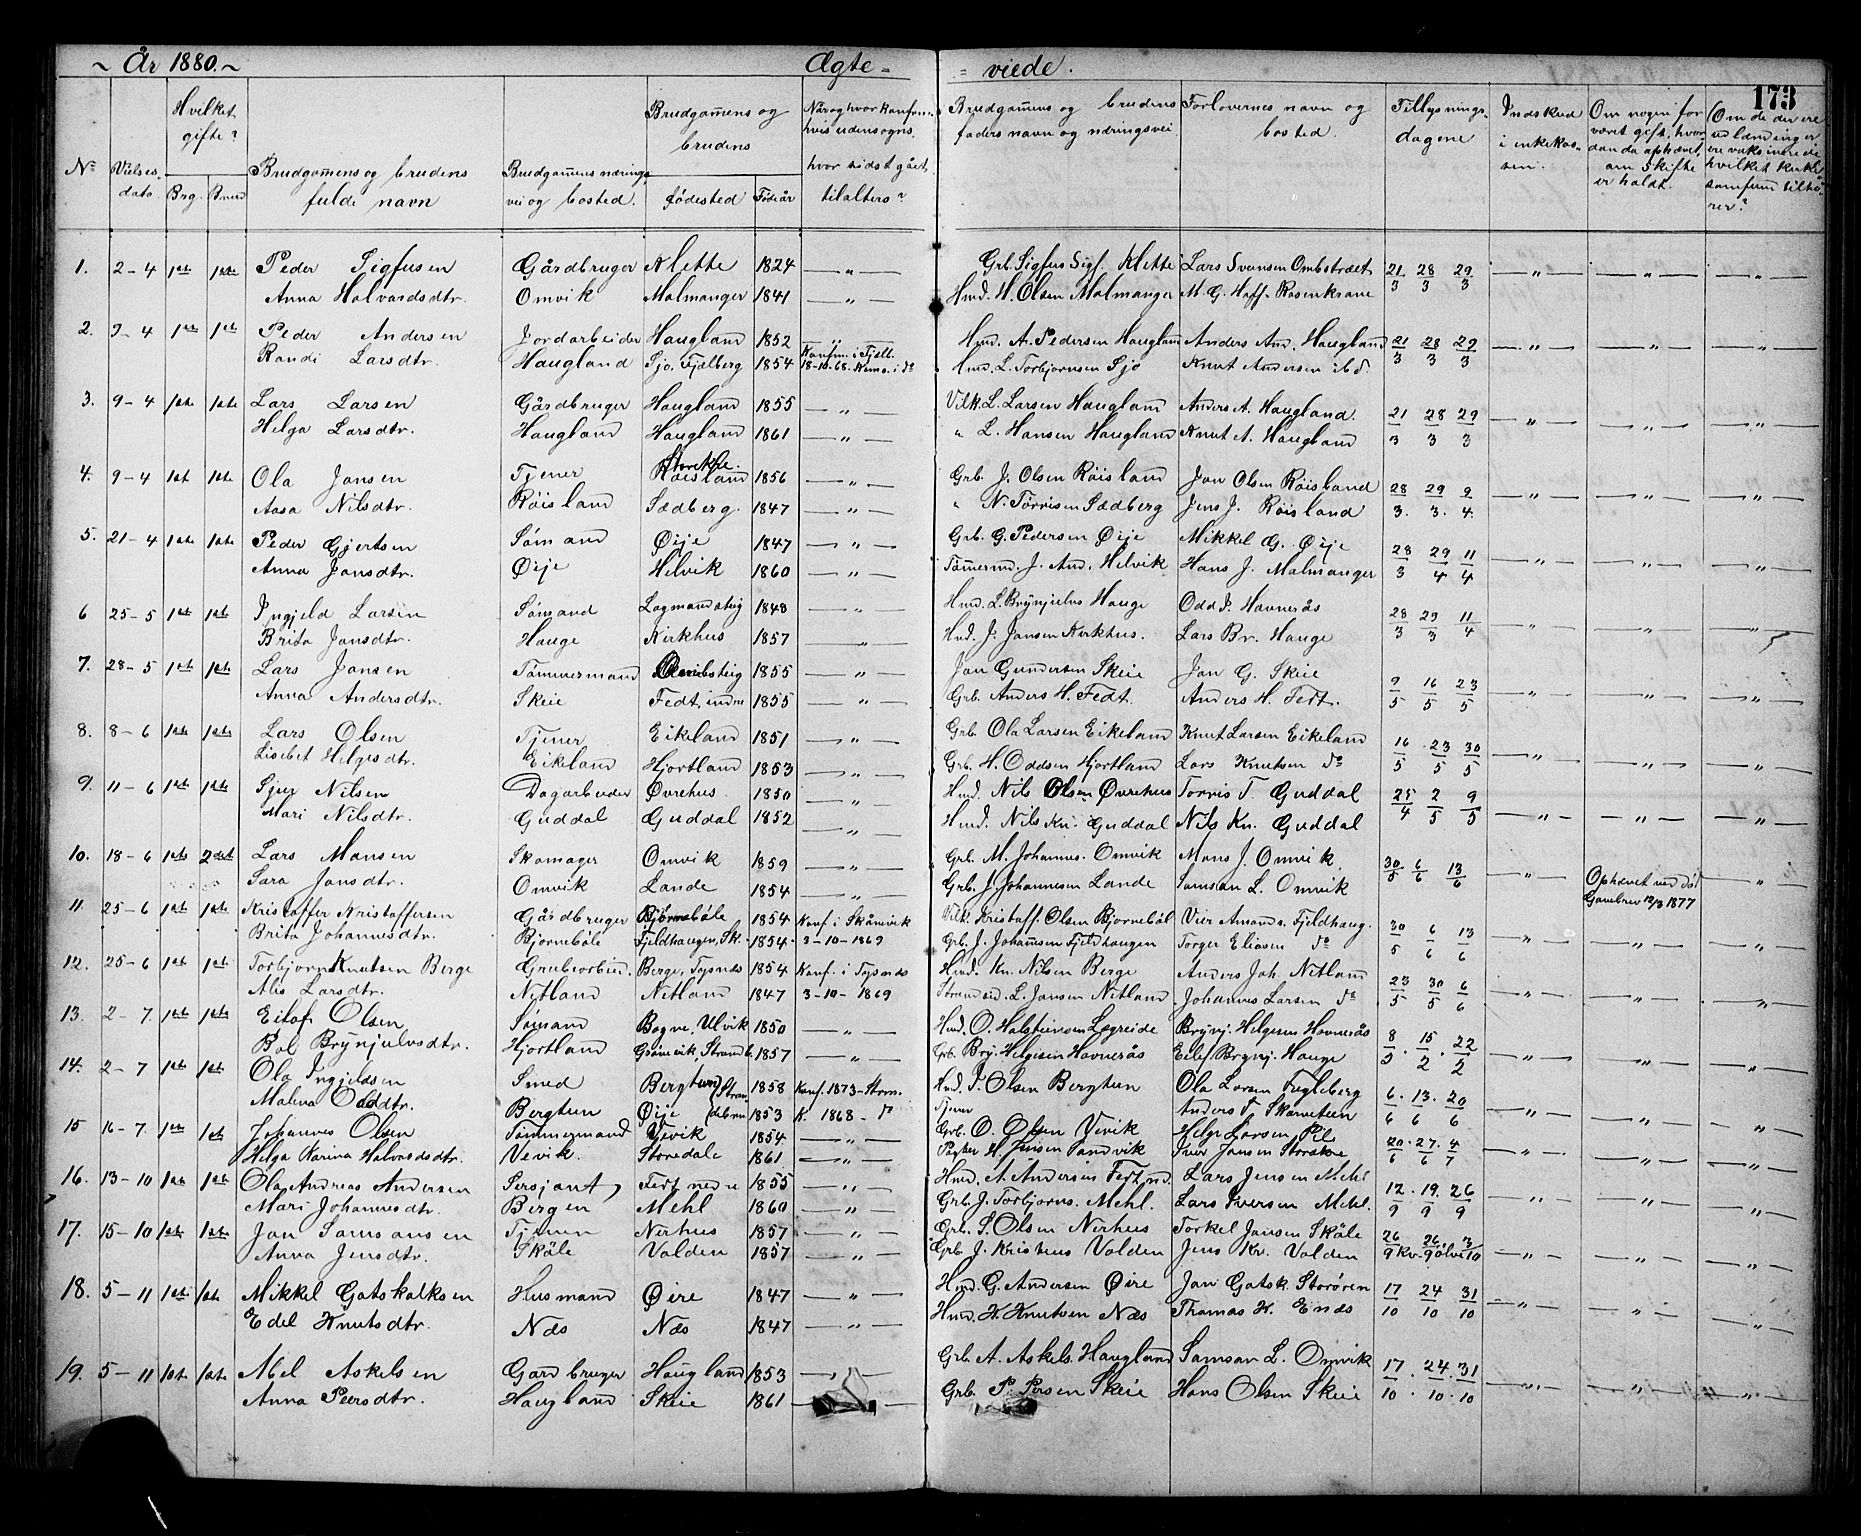 ~ År 1880. ~ Ægte= =viede. 173
Nº
Vielses-
dato.
Hvilket
gifte?
Brg. Brud
Brudgomens og brudens
fulde navn
Brudgomens nærings-
vei og bosted.
Brudgomens og
brudens
fødested Fødeår
Når og hvor konfm.
hvis udensogns,
hvor sidst gået
til alters?
Brudgomens og brudens
faders navn og næringsvei.
Forlovernes navn og
bosted.
Tillysnings-
dagene
Indskud
i enkekas-
sen.
Om nogen før
været gift, hvor-
dan da ophævet,
om skifte
er holdt.
Om de der ere
hvilket kirke-
samfund tilhø-
rer?
1. 2-4 1ste 1ste Peder Sigfusen Gårdbruger Klette 1824 — " — Grb. Sigfus Sigf. Klette Lars Svensen Ombstrædet 21/3 28/3 29/3 — " — — " — — " —
Anna Halvardsdtr. Omvik Malmanger 1841 — " — Hmd. H. Olsen Malmanger M. G. Hoff. Rosenkrane
2. 9-4 1ste 1st Peder Andersen Jordarbeider Haugland 1852 " Hmd. A. Pedersen Haugland Anders And. Haugland 21/3 28/3 29/3 — " — — " — — " —
Randi Larsdtr. Haugland Sjo, Fjelberg 1854 Konfm. i Fjelb. 18-10-68. Kom. i dº Hmd. L. Torbjornsen Sjo Knut Andersen ibd.
3. 9-4 1ste 1ste Lars Larsen Gårdbruger Haugland 1855 — " — Vilk. L. Larsen Haugland Anders A. Haugland. 21/3 28/3 29/3 — " — — " — — " —
Helga Larsdtr. Haugland Haugland 1861 — " — " L. Hansen Haugland Knut A. Haugland
4. 9-4 1st 1ste Ola Jonsen Tjener Røisland 1856 — " — Grb. J. Olsen Røisland Jon Olsen Røisland 28/3. 29/3. 9/4. — " — — " — — " —
Aasa Nilsdtr. Røisland Sædberg. 1847 — " — " N. Tørrisen Sædberg Jens J. Røisland
5. 21-4 1ste 1ste Peder Gjertsen Sømand Øije 1847 — " — Grb. G. Pedersen Øije Mikkel G. Øije 28/3 29/4 11/4 — " — — " — — " —
Anna Jonsdtr. Øije Helvik 1860 — " — Tømermd. J. And. Helvik Hans J. Malmanger
6 25-5 1st 1ste Ingjeld Larsen Sømand Lagmandsteig 1848 — " — Hmd. L. Brynjulvs Hauge Odd P. Havnerås 28/3 29/3 11/4 — " — — " — — " —
Brita Jonsdtr. Hauge Kirkhus 1857 — " — Hmd. J. Jonsen Kirkhus. Lars Br. Hauge
7. 28-5 1st 1st Lars Jonsen Tømmermand 1855 — " — Jon Gundersen Skeie Jon G. Skeie 9/5 16/5 23/5 — " — — " — — " —
Anna Andersdtr. Skeie Fedt, indre 1855 — " — Grb. Anders H. Fedt. Anders H. Fedt.
8. 8-6 1ste 1ste Lars Olsen Tjener Eikeland 1851 — " — Grb. Ola Larsen Eikeland Knut Larsen Eikeland 16/5 23/5 30/5 — " — — " — — " —
Lisebet Helgesdtr. Eikeland Hjortland 1853 — " — Grb. H. Oddsen Hjortland Lars Knutsen dº
9. 11-6 1ste 1ste Sjur Nilsen Dagarbeider Øvrehus. 1850 — " — Hmd. Nils Olsen Øvrehus Torris T. Guddal 25/4 2/5 9/5 — " — — " — — " —
Mari Nilsdtr. Guddal Guddal 1852 — " — Hmd. Nils Kn. Guddal Nils Kn. Guddal
10. 18-6 1ste 2det Lars Monsen Skomager Omvik 1859 — " — Grb. M. Johannes. Omvik Mons J. Omvik 30/5 6/6 13/6 — " — Ophævet ved død — " —
Sara Jonsdtr. Omvik Lande 1854 — " — Grb. J. Johannesen Lande Samson L. Omvik Gavebrev 12/3 1877
11. 25-6 1st 1st Kristoffer Kristoffersen Gårdbruger Bjørnebøle 1854 Konf. i Skånevik Vilk. Kristoff. Olsen Bjornebøl Vier Amands. Fjeldhaug. 30/5 6/6 13/6 — " — — " — — " —
Brita Johannesdtr. Bjornebøle Fjeldhaugen, Sk. 1854 3-10-1869 Grb. J. Johannsen Fjeldhaugen Torger Eliasen dº
12. 25-6 1st 1st Torbjorn Knutsen Berge Grubearbeid. Berge, Tysnæs 1854 Konf. i Tysnæs Hmd. Kn. Nilsen Berge Anders Joh. Nitland 23/5 30/5 6/6 — " — — " — — " —
Alis Larsdtr. Nitland Nitland 1847 3-10-1869 Strandsid. L. Jonsen Nitland Johannes Larsen dº
13. 2-7. 1st 1ste Eilof Olsen Sømand Bagne, Ulvik 1850 — " — Hmd. O. Halsteinsen Lægreide Brynj. Helgesen Havnerås 8/2. 15/2. 22/2 — " — — " — — " —
Bol Brynjulvsdtr. Hjortland Grønevik, Strandb. 1857 — " — Grb. Brj. Helgesen Havnerås Eilef Brynj. Hauge
14. 2-7 1st 1st Ola Ingjeldsen Smed Bergtun 1858 Konf. 1873-Strm. Hmd. I. Olsen Bergtun Ola Larsen Fugleberg 6/6. 13/6. 20/6 — " — — " — — " —
Malena Oddsdtr. Bergtun Øije 1853 K. 1868 - dº Tjener Anders T. Skarveteen
15 16-7. 1ste 1st Johannes Olsen Tømmermand Vevik 1854 — " — Grb. O. Olsen Vevik Helge Larsen Pile 20/6. 27/6. 4/7 — " — — " — — " —
Helga Karina Halvardsdtr. Vevik. Storedale 1861 — " — Pagter H. Jensen Sandvik Iver Jonsen Storekre
16. 13-10 1st 1st Ola Andreas Andersen Sersjant, Fedt nedre 1855 — " — Hmd. A. Andersen Fedt nd. Lars Jensen Mehl 12/9. 19/9. 26/9 — " — — " — — " —
Mari Johannesdtr. Bergen Mehl 1860 — " — Grb. J. Torbjorns. Mehl. Lars Iversen Mehl.
17. 15-10 1ste 1ste Jon Samsonsen Tjener Nerhus 1857 — " — Grb. S. Olsen Nerhus Torkel Jonsen Skåle 26/9 26/9 3/10 — " — — " — — " —
Anna Jensdtr. Skåle Valden 1857 — " — Grb. J. Kristens Valden Jens Kr. Valden
18. 5-11 1st 1st. Mikkel Gotskalksen Husmand Øire 1847 — " — Hmd. G. Andersen Øire Jon Gotsk. Storøren 17/10 24/10 31/10 — " — — " — — " —
Edel Knutsdtr. Næs Næs 1847 — " — Hmd. K. Knutsen Næs Thomas K. Enæs
19. 5-11 1st. 1st. Abel Askelsen Gardbruger Haugland 1853 — " — Grb. A. Askels. Haugland Samson L. Omvik 17/10. 24/10. 31/10 — " — — " — — " —
Anna Peersdtr. Haugland Skeie 1861 Grb. P. Persen Skeie Hans Olsen Skeie